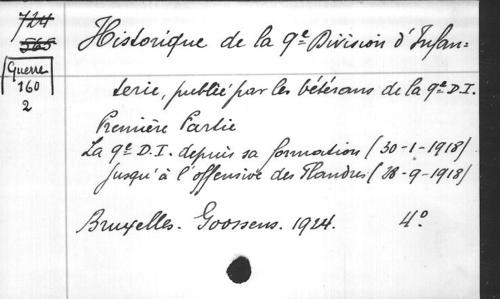 724
565
Guerre
160
2
Historique de la 9e Division d'Infan-
terie, publié par les vétérans de la 9e D.I.
Première Partie
La 9e D.I. depuis sa formation (30-1-1918)
jusqu'à l'offensive des Flandres (28-9-1918)
Bruxelles. Goossens. 1924. 4°